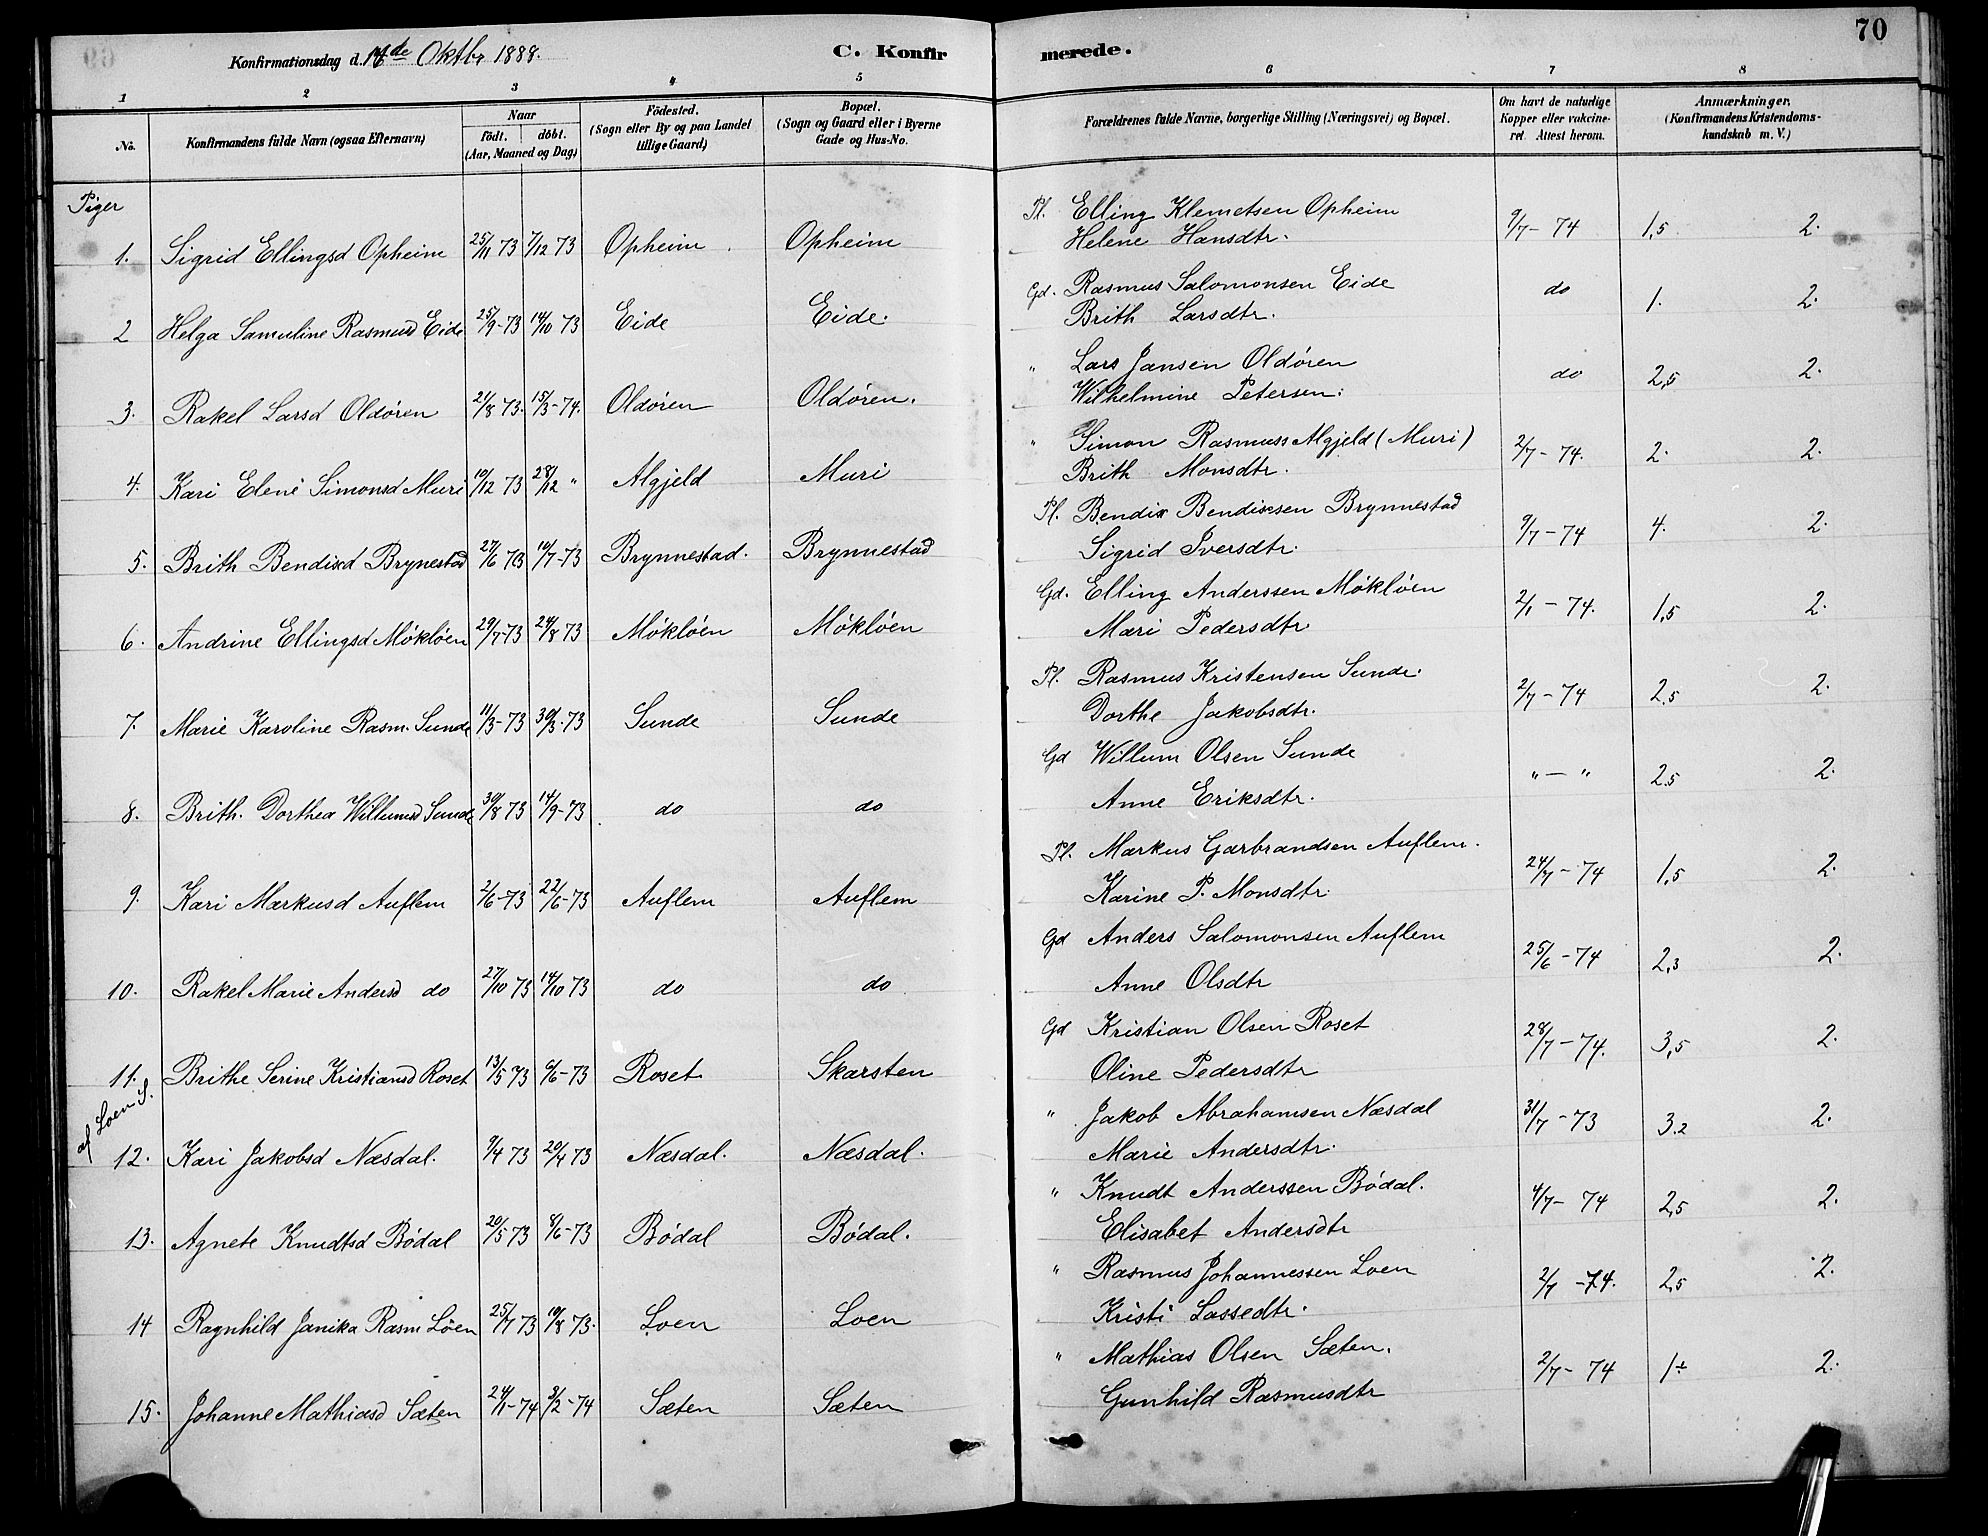 70
Konfirmationsdag d. 14de Oktbr 1888. C. Konfirmerede.
1 2 3 4 5 6 7 8
No. Konfirmandens fulde Navn (ogsaa Efternavn) Naar födt. döbt. (Aar, Maaned og Dag) Födested. (Sogn eller By og paa Landet tillige Gaard) Bopæl. (Sogn og Gaard eller i Byerne Gade og Hus-No. Forældrenes fulde Navne, borgerlige Stilling (Næringsvei) og Bopæl. Om havt de naturlige Kopper eller vakcineret. Attest herom. Anmærkninger. (Konfirmandens Kristendomskundskab m. V.)
Piger
1. Sigrid Ellingsd Opheim 25/11 73 7/12 73 Opheim Opheim Pl. Elling Klemetsen Opheim 9/7-74 1,5 2.
Helene Hansdtr.
2 Helga Samuline Rasmusd Eide 25/9-73 14/10 73 Eide Eide. Gd. Rasmus Salomonsen Eide do 1. 2.
Brith Larsdtr.
3. Rakel Larsd Oldøren 21/8 73. 15/3-74. Oldøren Oldøren. " Lars Jansen Oldøren do 2,5 2.
Wilhelmine Petersen.
4. Kari Elene Simonsd Muri 10/12 73 28/12 " Algjeld Muri " Simon Rasmuss Algjeld (Muri) 2/7-74. 2. 2.
Brith Monsdtr.
5. Brith Bendixd Brynestad 27/6 73 10/7-73 Brynnestad. Brynnestad Pl. Bendix Bendixsen Brynnestad 9/7-74 4. 2.
Sigrid Iversdtr.
6. Andrine Ellingsd Møkløen 29/7-73 24/8 73 Møkløen Møkløen Gd. Elling Anderssen Møkløen 2/1-74. 1,5 2.
Mari Pedersdtr.
7. Marie Karoline Rasm. Sunde 11/3-73 30/3-73 Sunde Sunde Pl. Rasmus Kristensen Sunde. 2/7-74 2,5 2.
Dorthe Jakobsdtr.
8. Brith. Dorthea Willumsd Sunde 30/8 73 14/9-73 do do Gd Willum Olsen Sunde " — " 2.5 2.
Anne Eriksdtr.
9. Kari Markusd Auflem 2/6-73 22/6-73 Auflem Auflem Pl. Markus Garbrandsen Auflem. 24/7-74 1,5 2.
Karine P. Monsdtr.
10. Rakel Marie Andersd do 27/10 73 14/10 73 do do Gd Anders Salomonsen Auflem 25/6-74 2,3 2.
Anne Olsdtr
11. Brithe Serine Kristiansd Roset 13/5 73 6/6-73 Roset Skarsten Gd Kristian Olsen Roset 28/7-74. 3,5 2.
Oline Pedersdtr
af Loen S.
12. Kari Jakobsd Næsdal. 9/4 73 20/4 73 Næsdal. Næsdal. " Jakob Abrahamsen Næsdal 31/7-73 3.2 2.
Marie Andersdtr.
13. Agnete Knudtsd Bødal 20/5 73 8/6-73 Bødal Bødal. " Knudt Anderssen Bødal. 4/7-74 2,5 2.
Elisabet Andersdtr
14 Ragnhild Janika Rasm Löen 25/7 73 10/8 73. Loen Loen " Rasmus Johannessen Loen 2/7-74. 2,5 2.
Kristi Lassedtr.
15. Johanne Mathiasd Sæten 24/1-74 8/2-74 Sæten Sæten " Mathias Olsen Sæten. 2/7-74 1± 2.
Gunhild Rasmusdtr